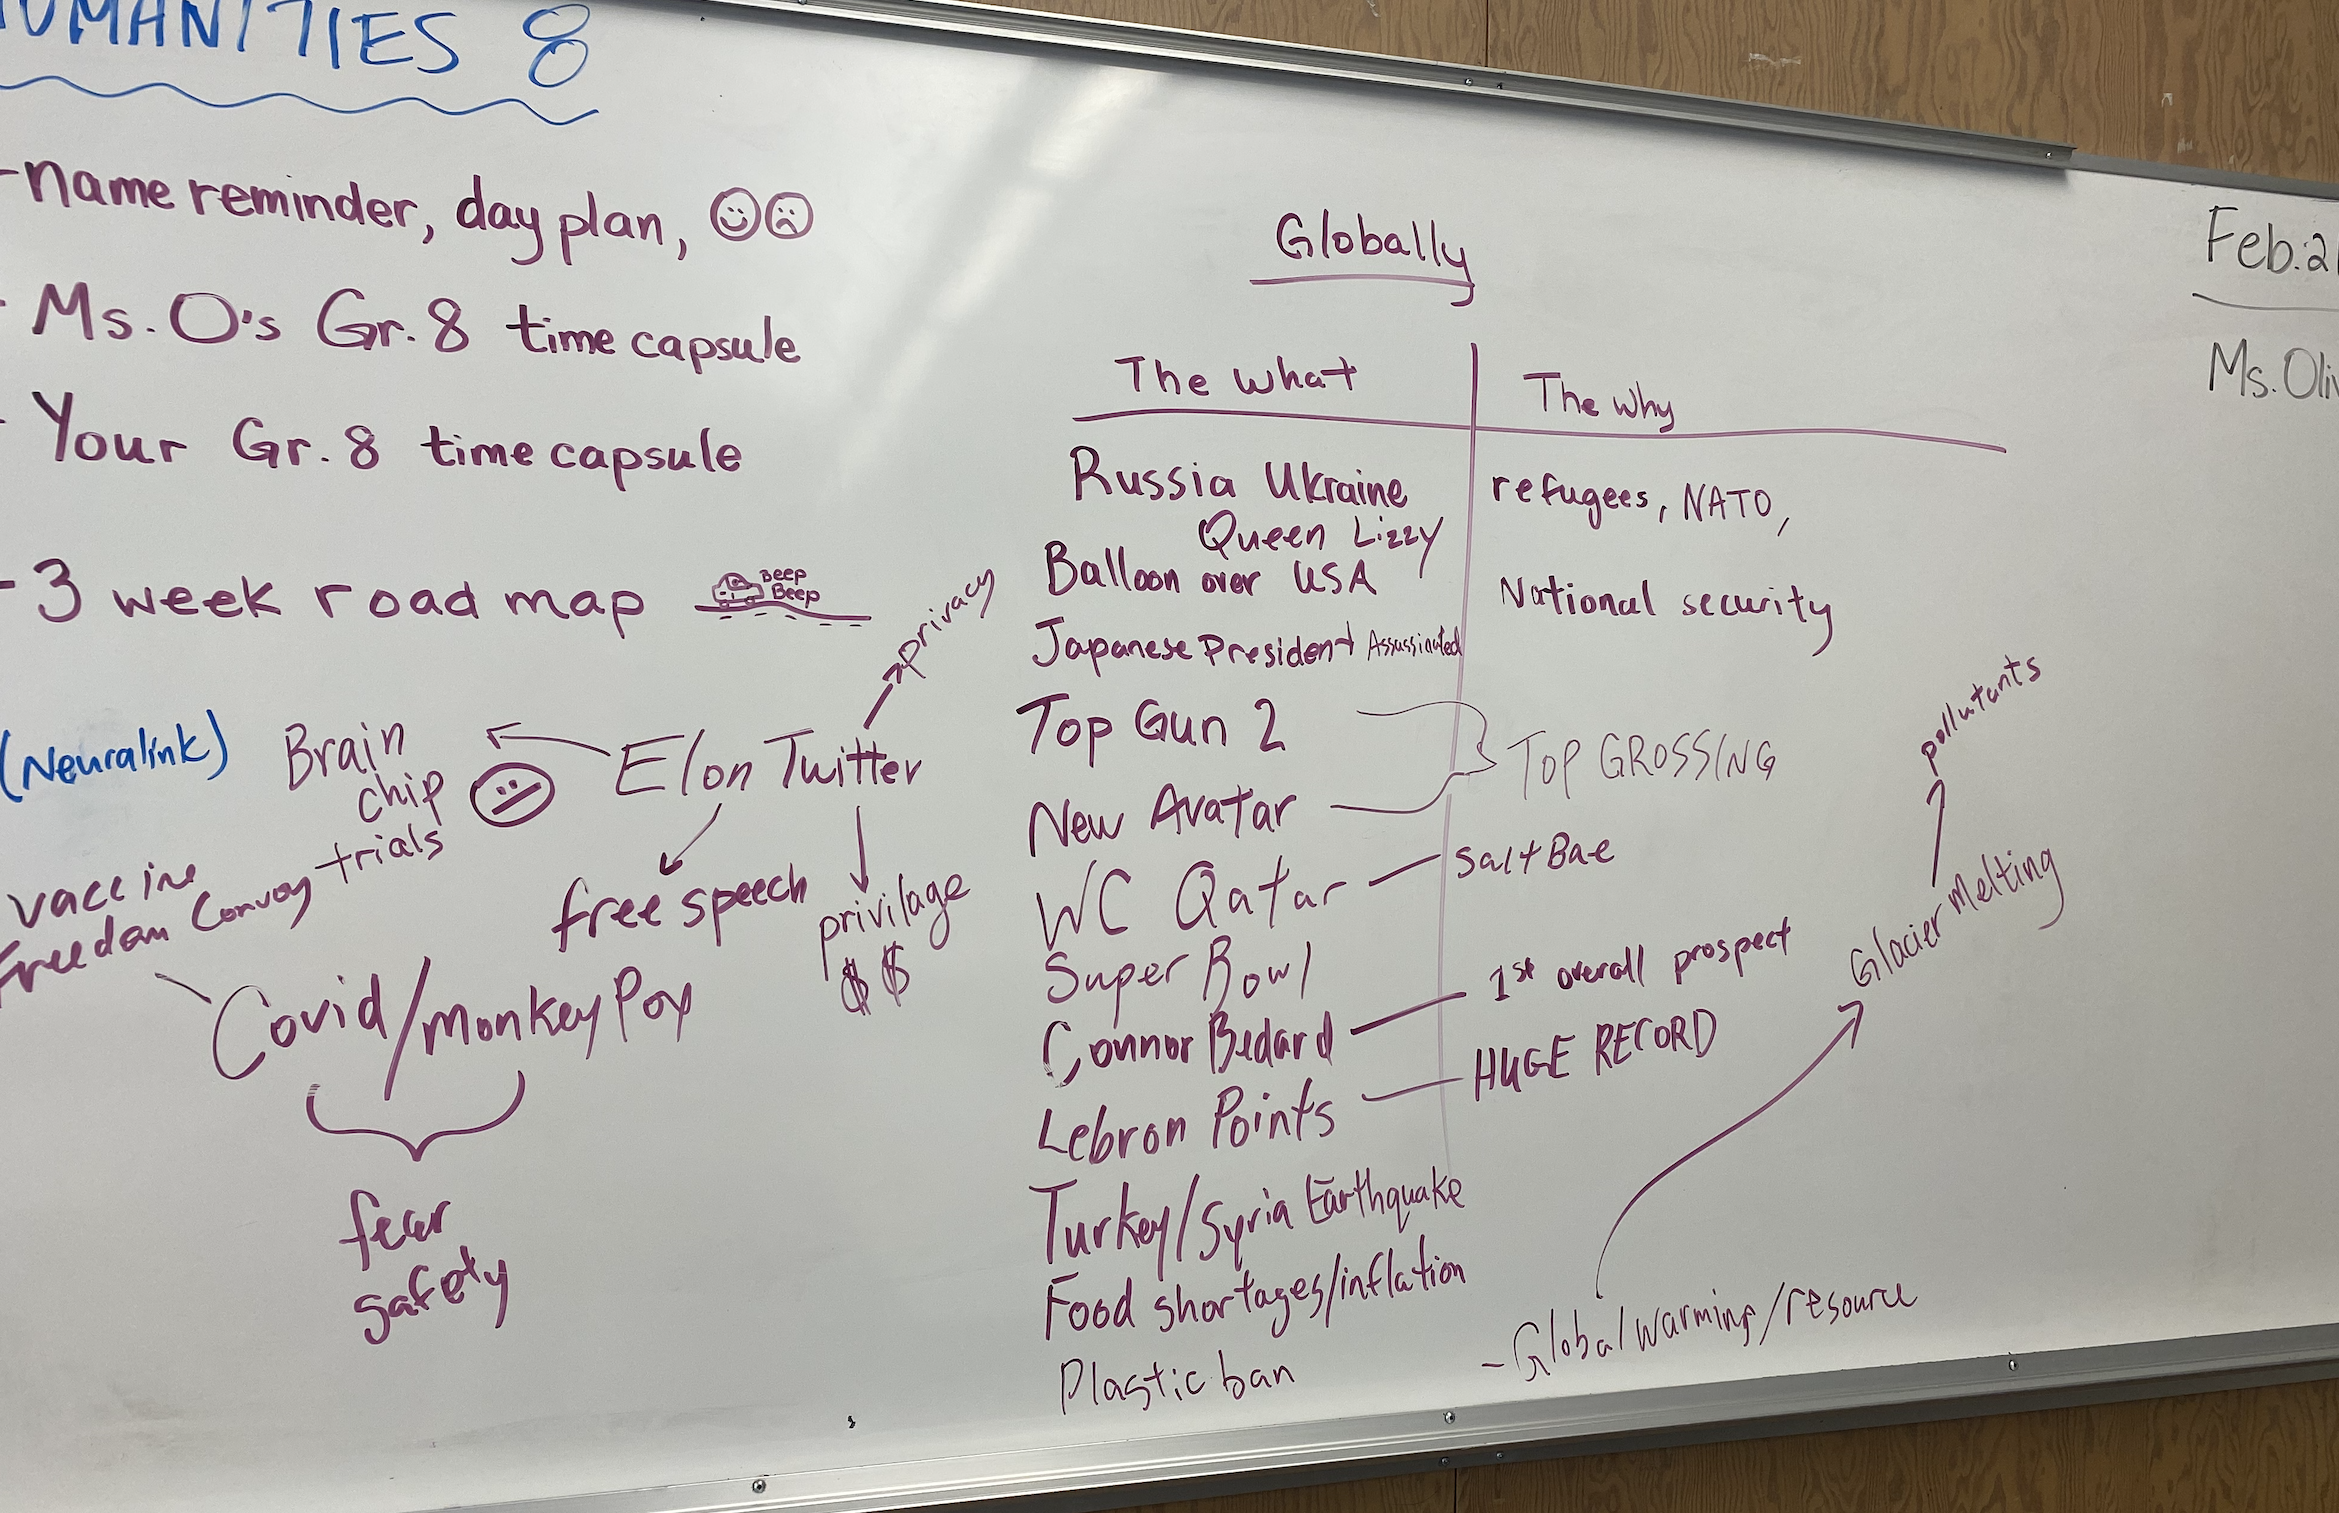 HUMANITIES 8
- name reminder, day plan,
- Ms. O's Gr. 8 time capsule
- Your Gr. 8 time capsule
- 3 week road map
Beep
Beep
privacy
(Neuralink)
Brain
chip
trials
Elon Twitter
free speech
privilage
$ $
vaccine
Freedom Convoy
Covid/monkey Pox
fear
safety
Globally
The what
The why
Russia Ukraine
refugees, NATO,
Queen Lizzy
Balloon over USA
National security
Japanese President Assassinated
Top Gun 2
New Avatar
TOP GROSSING
WC Qatar
Salt Bae
Super Bowl
Connor Bedard
1st overall prospect
Lebron Points
HUGE RECORD
Turkey/Syria Earthquake
Food shortages/inflation
Plastic ban
- Global warming/resource
Glacier Melting
pollutants
Feb. 21
Ms. Oliv